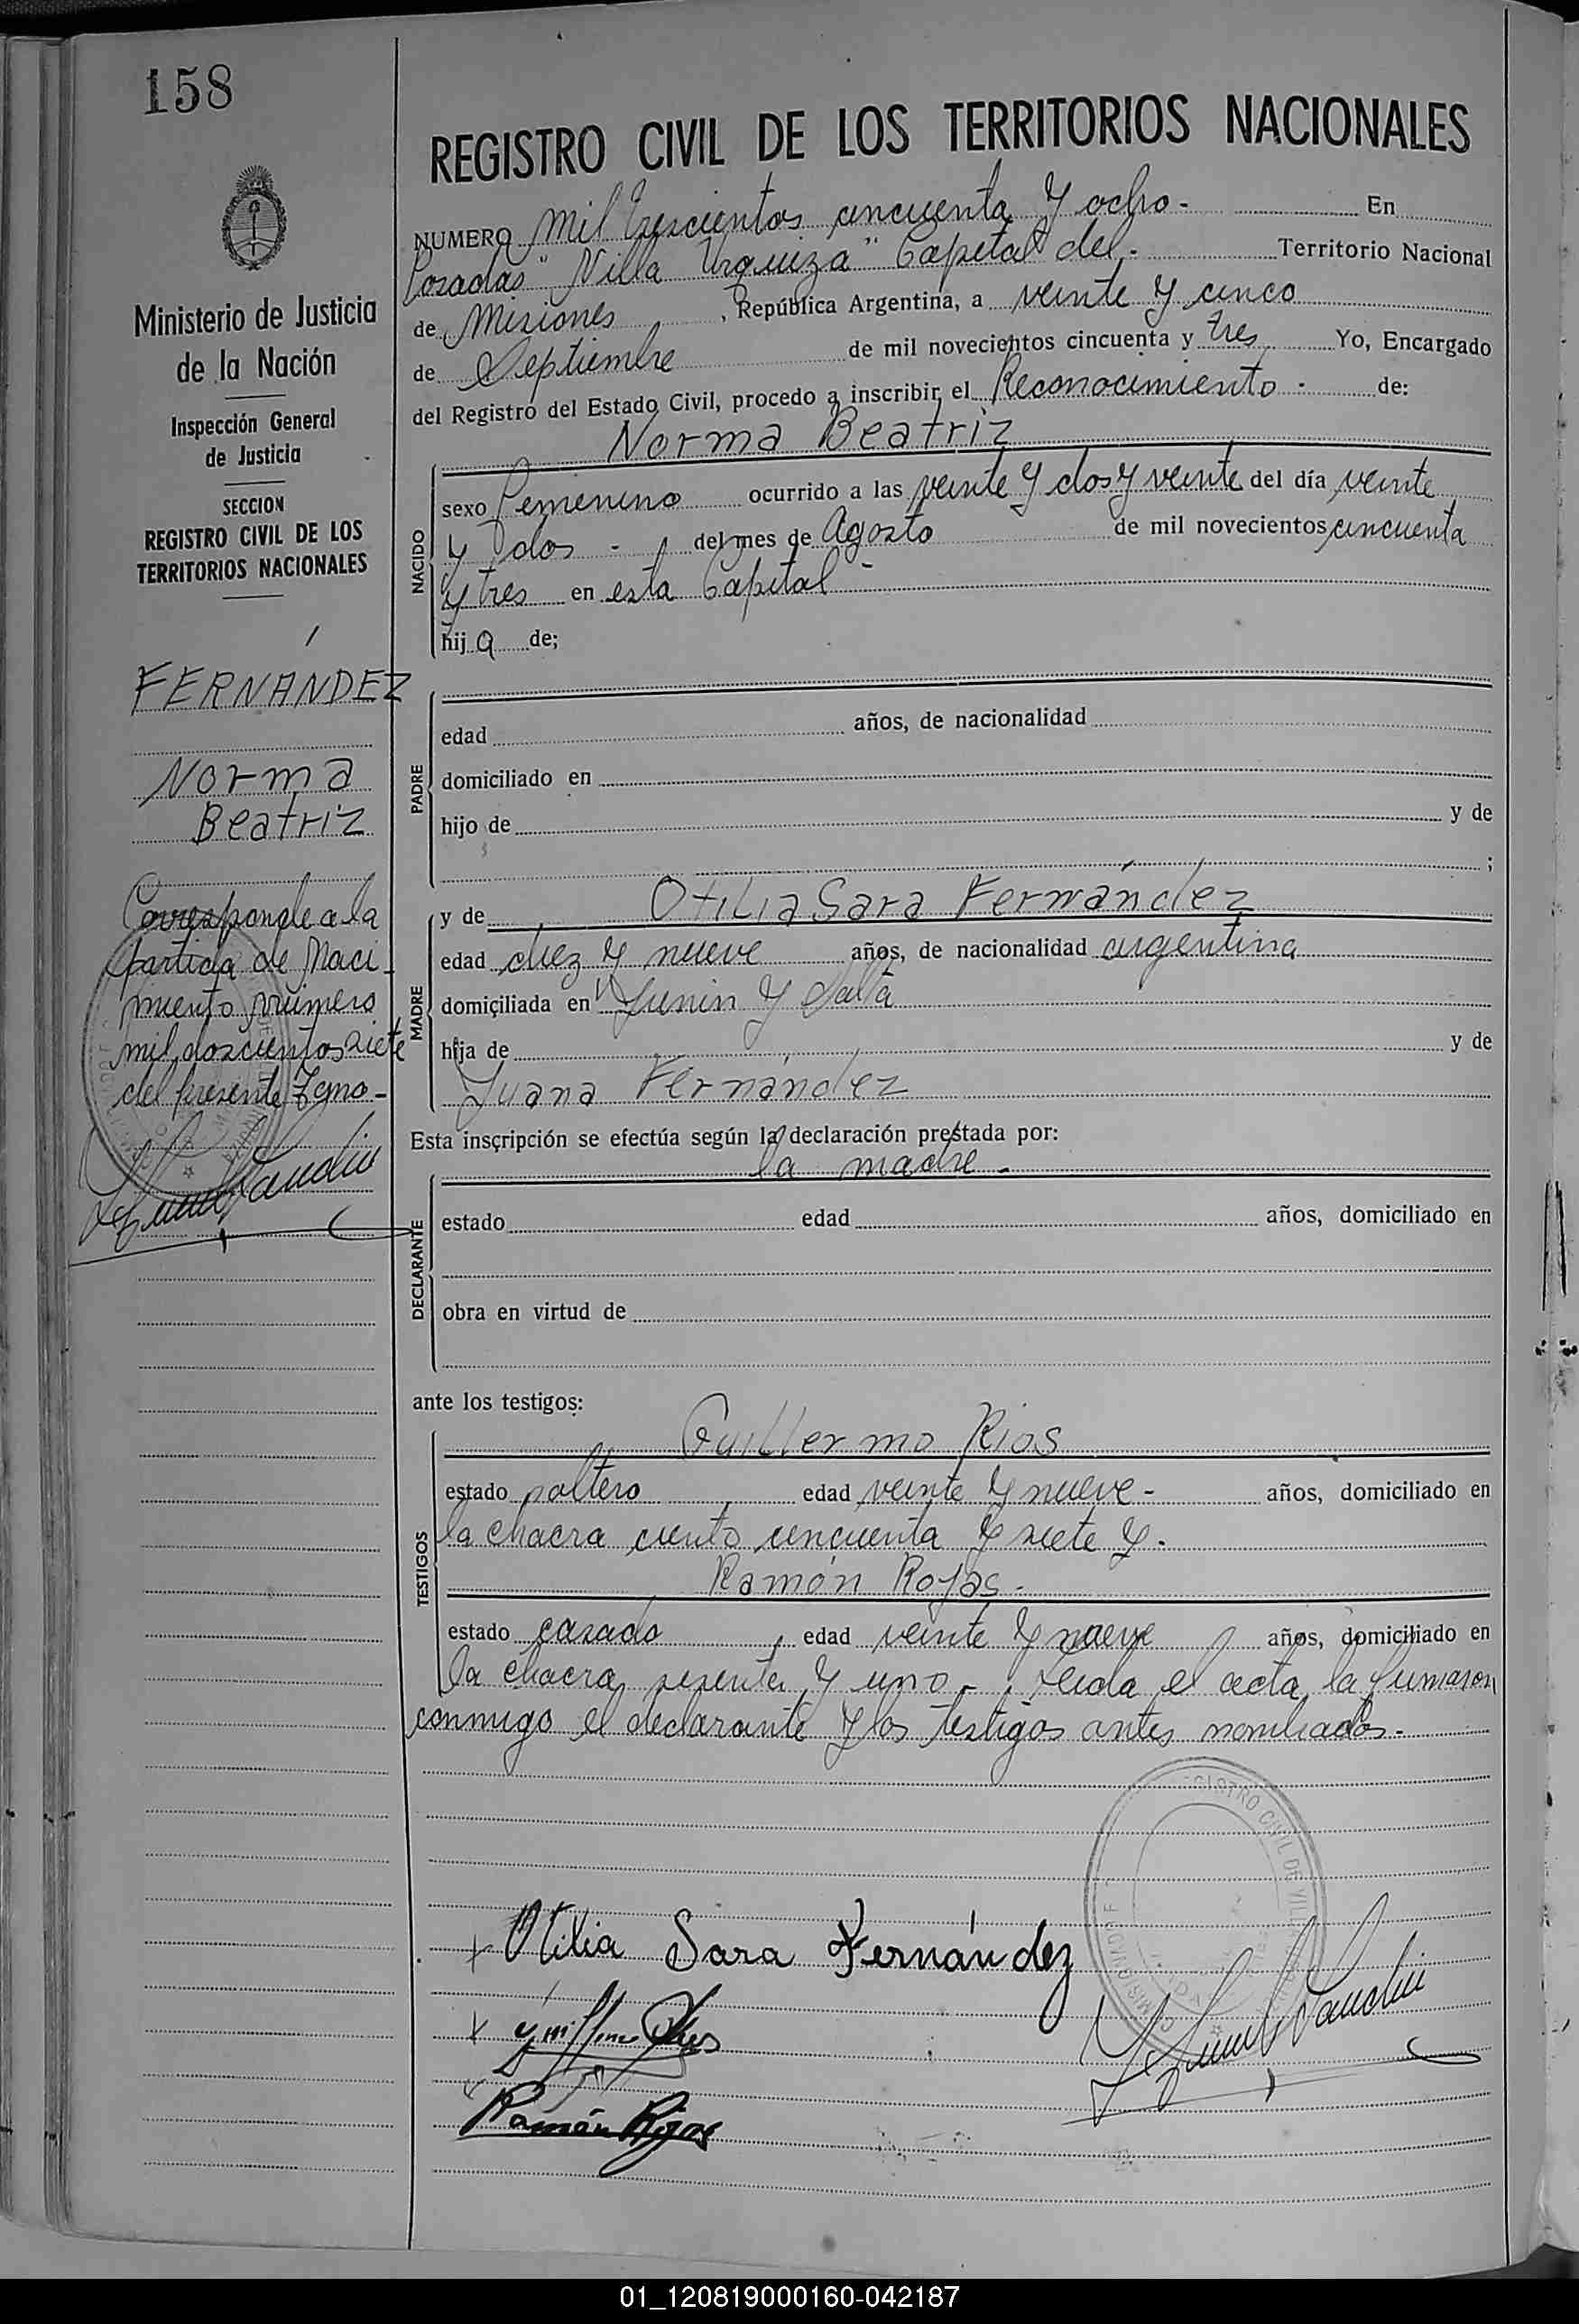 158
REGISTRO CIVIL DE LOS TERRITORIOS NACIONALES
NUMERO Mil trescientos cincuenta y ocho - En
Posadas "Villa Urquiza" Capital del - Territorio Nacional
de Misiones, República Argentina, a veinte y cinco
de Septiembre de mil novecientos cincuenta y tres Yo, Encargado
del Registro del Estado Civil, procedo a inscribir el Reconocimiento - de:
Norma Beatriz
NACIDO
sexo Femenino ocurrido a las veinte y dos y veinte del día veinte
y dos - del mes de Agosto de mil novecientos cincuenta
y tres en esta Capital -
hija de;
PADRE
edad años, de nacionalidad
domiciliado en
hijo de y de
;
MADRE
y de Otilia Sara Fernández
edad diez y nueve años, de nacionalidad argentina
domiciliada en Junin y Salta
hija de y de
Juana Fernández
Esta inscripción se efectúa según la declaración prestada por:
la madre -
DECLARANTE
estado edad años, domiciliado en
obra en virtud de
ante los testigos:
TESTIGOS
Guillermo Rios
estado soltero edad veinte y nueve - años, domiciliado en
la chacra ciento cincuenta y siete y -
Ramón Rojas -
estado casado, edad veinte y nueve años, domiciliado en
la chacra sesenta y uno - Leida el acta la firmaron
conmigo el declarante y los testigos antes nombrados -
Otilia Sara Fernández
Ramón Rojas
Ministerio de Justicia
de la Nación
Inspección General
de Justicia
SECCION
REGISTRO CIVIL DE LOS
TERRITORIOS NACIONALES
FERNÁNDEZ
Norma
Beatriz
Corresponde a la
partida de Naci-
miento número
mil doscientos siete
del presente Tomo -
01_120819000160-042187